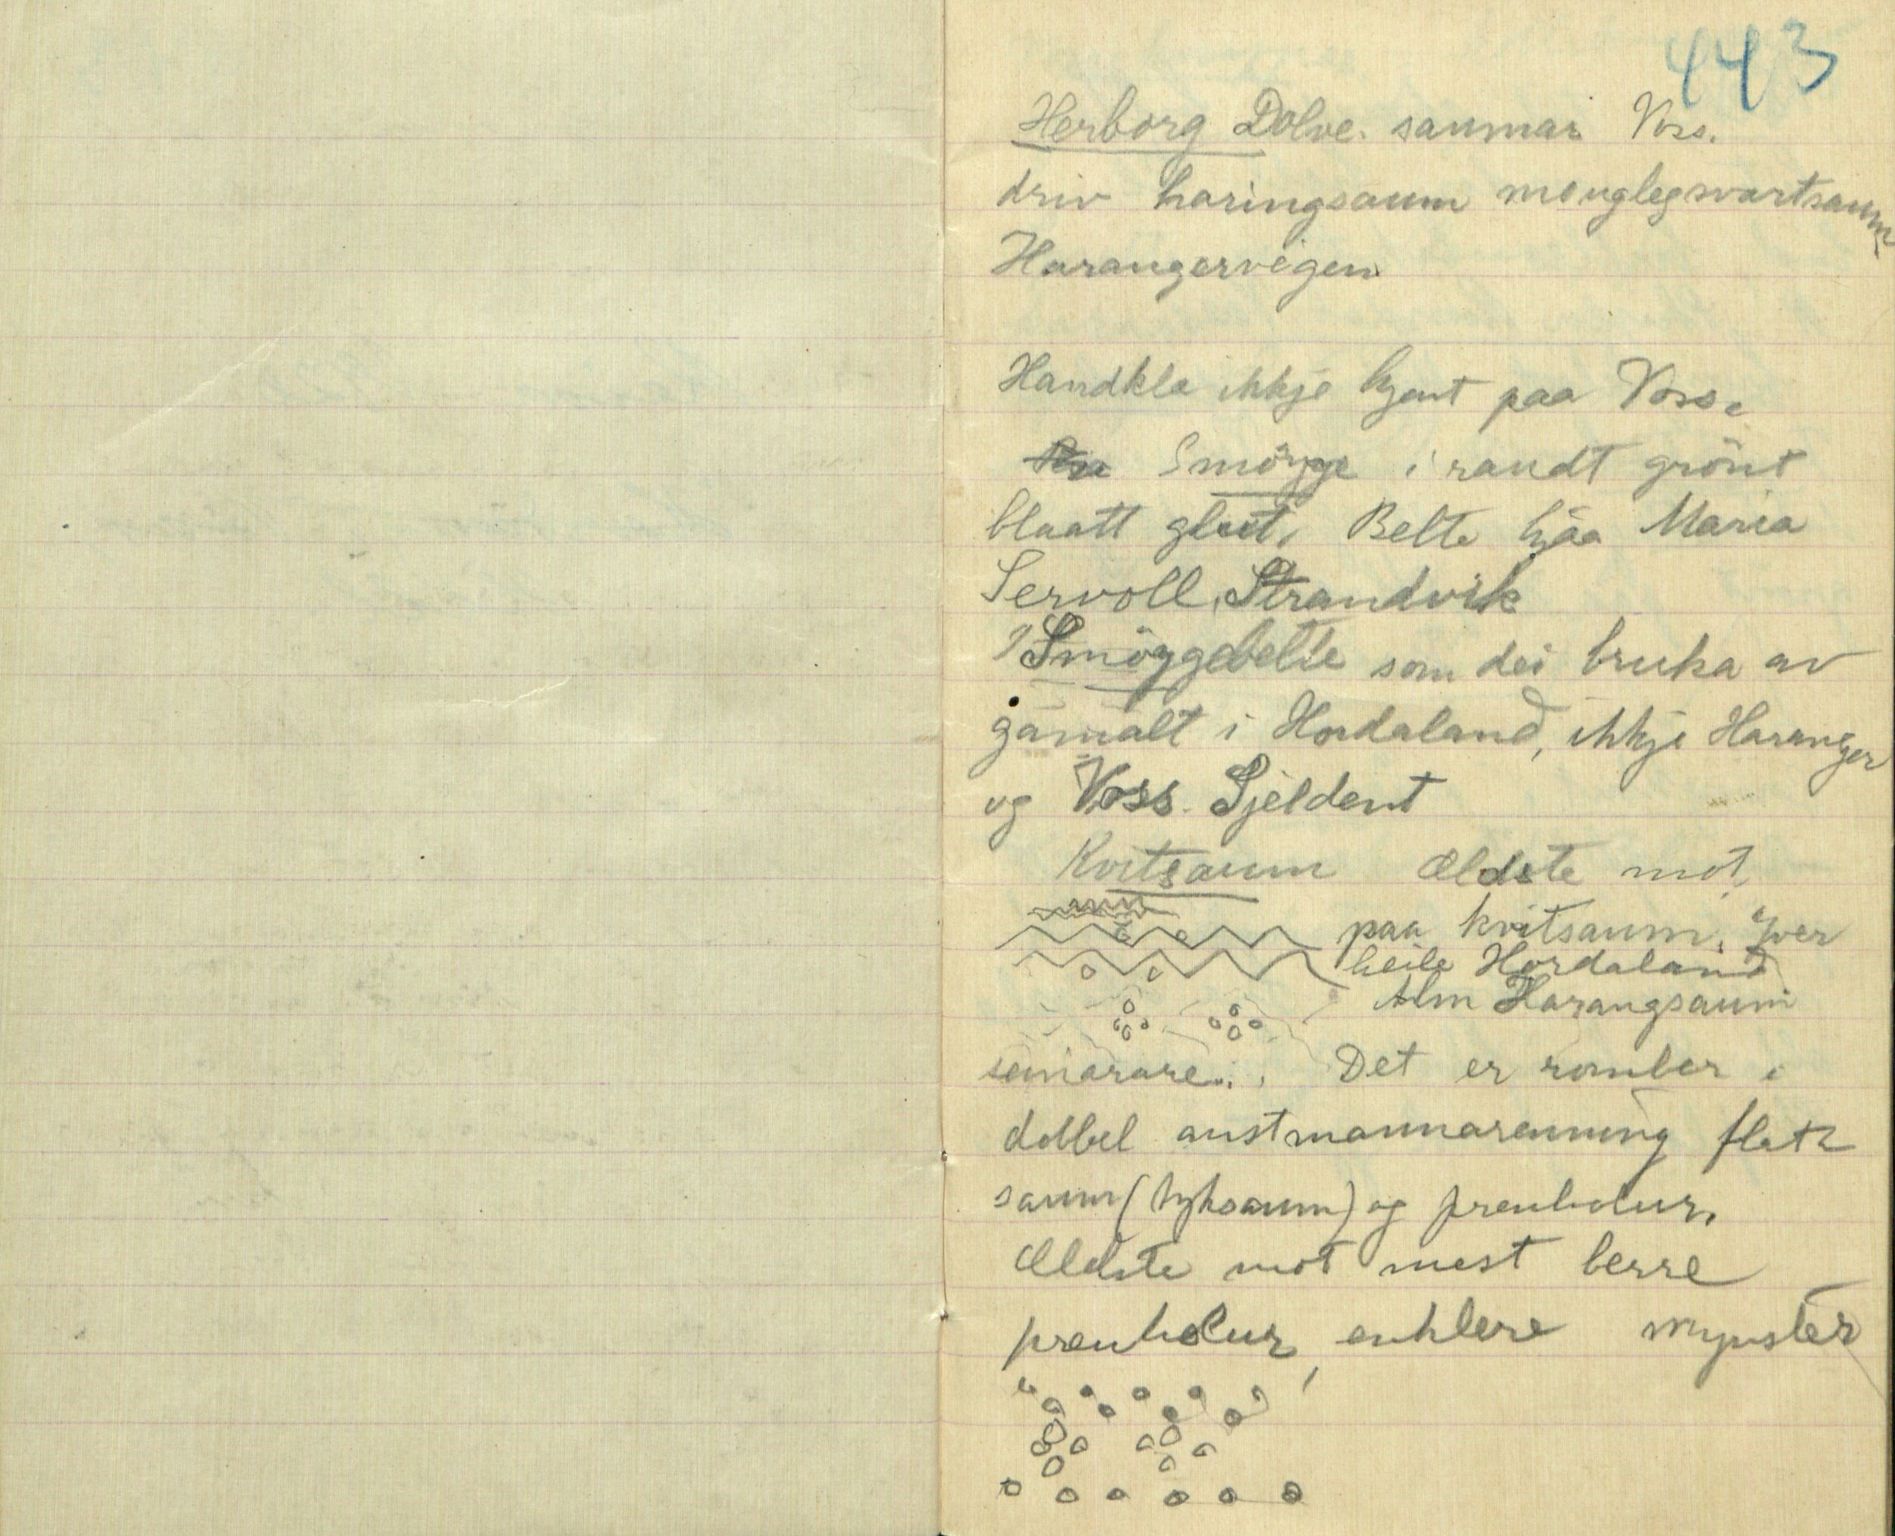 443
Herborg Dolve. saumar Voss.
driv haringsaum svartsaum
Harangervegen
Handkle ikkje kjent paa Voss.
Smöyge i raudt grönt
blaatt gult. Belte hjaa Maria
Servoll, Strandvik
Smöygebelte som dei bruka av
gamalt i Hordaland, ikkje Haranger
og Voss. Sjeldent
Kvitsaum Ældste mot
paa kvitsaum. Yver
heile Hordaland
Alm Harangsaum
seinarare. Det er romber i
dobbel austmannarenning flat
saum ( ) og prenholur.
Ældste mot mest berre
prenholur, enklere mynster